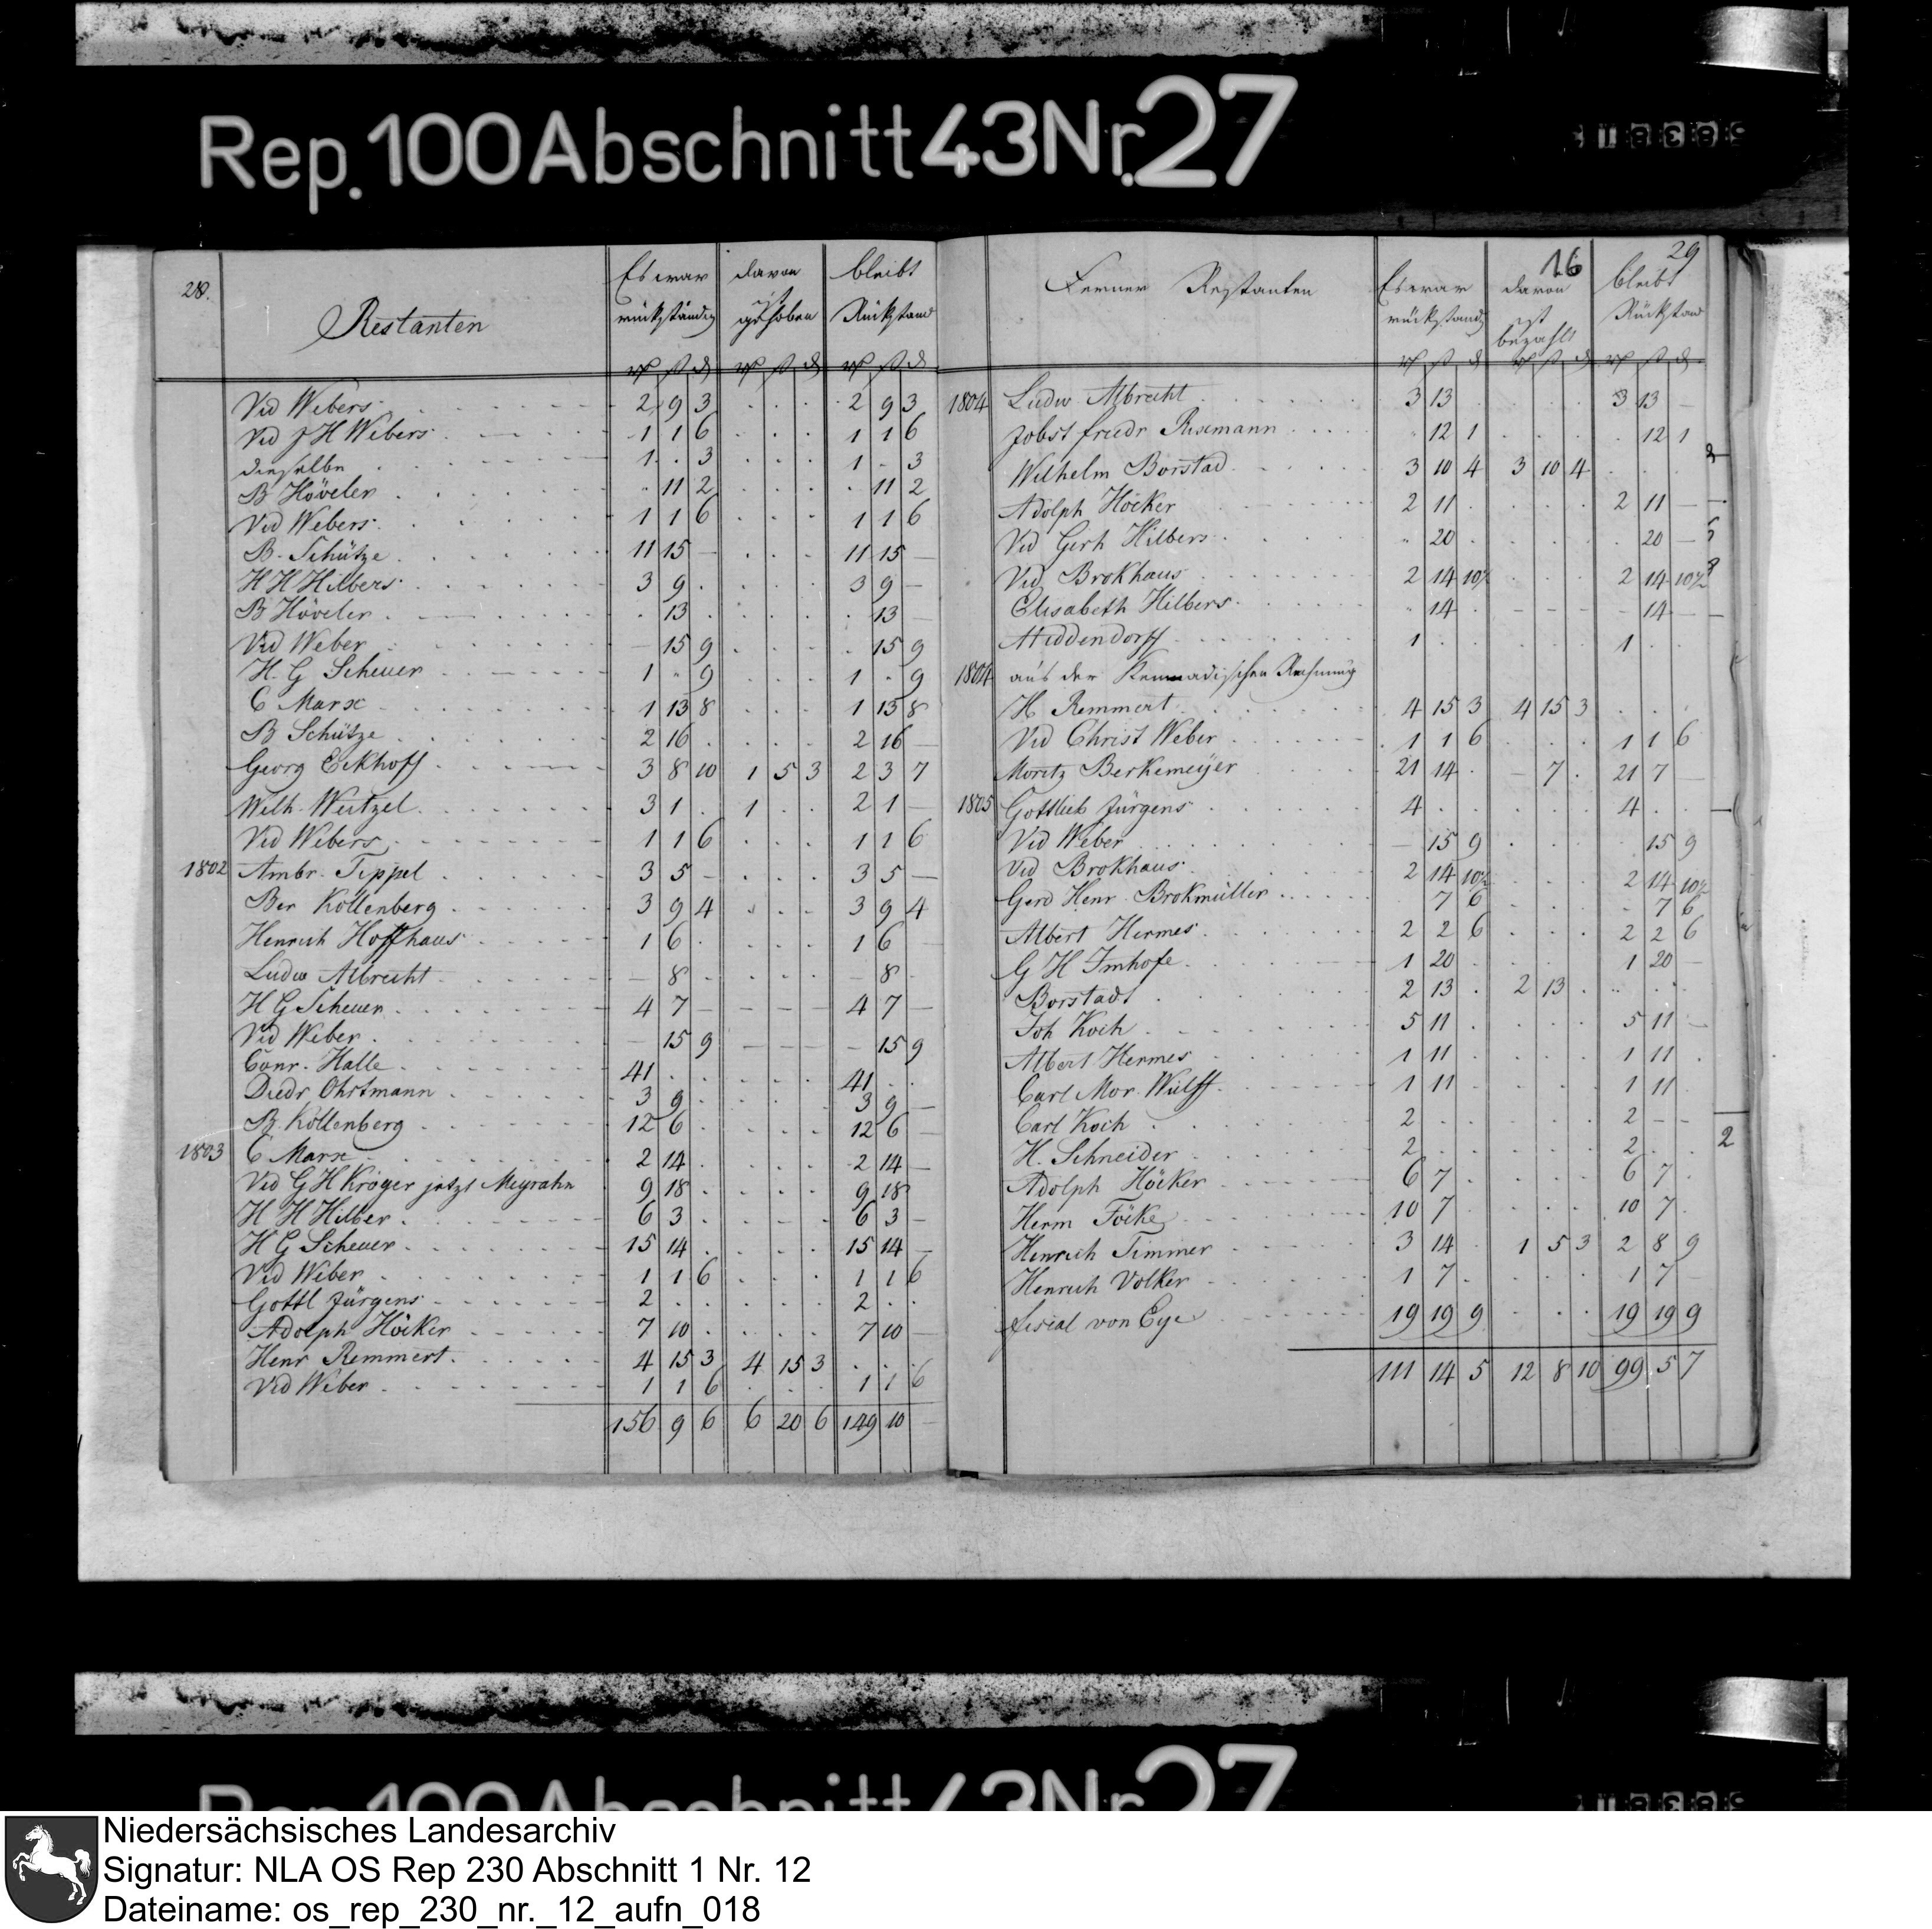 Rep. 100 Abschnitt 43 Nr. 27
28.
Restanten
Es war rückständig
davon ist gehoben
bleibt Rückstand
Vid Webers 2 9 3 . . . 2 9 3
Vid J H Webers 1 1 6 . . . 1 1 6
dieselbe 1 . 3 . . . 1 - 3
B Höveler .. 11 2 . . . . 11 2
Vid Webers 1 1 6 . . . 1 1 6
B. Schütze 11 15 – . . . 11 15 –
H H Hilbers 3 9 . . . . 3 9 –
B Höveler . 13 . . . . . 13 –
Vid Weber – 15 9 . . . . 15 9
H. G Scheuer 1 .. 9 . . . 1 .. 9
C Marx 1 13 8 . . . 1 13 8
B Schütze 2 16 . . . . 2 16 –
Georg Eckhoff 3 8 10 1 5 3 2 3 7
Wilh. Weitzel 3 1 . 1 . . 2 1 –
Vid Webers 1 1 6 . . . 1 1 6
1802 Ambr. Tippel 3 5 – . . . 3 5 –
Ber Köllenberg 3 9 4 . . . 3 9 4
Henrich Hoffhaus 1 6 . . . . 1 6 –
Ludw Albrecht – 8 . . . . – 8 .
H G Scheuer 4 7 – – – – 4 7 –
Vid Weber – 15 9 – – – – 15 9
Conr. Halle 41 . . . . . 41 . .
Diedr Ohrtmann 3 9 . . . . 3 9 –
B. Köllenberg 12 6 . . . . 12 6 –
1803 C Marx 2 14 . . . . 2 14 –
Vid G H Kröger jetzt Meyrahn 9 18 . . . . 9 18
H H Hilber 6 3 . . . . 6 3 –
H G Scheuer 15 14 . . . . 15 14 –
Vid Weber 1 1 6 . . . 1 1 6
Gottl Jürgens 2 . . . . . 2 . .
Adolph Höcker 7 10 . . . . 7 10 –
Henr Remmert 4 15 3 4 15 3 . . .
Vid Weber 1 1 6 . . . 1 1 6
156 9 6 6 20 6 149 10 –
16
29
Ferner Restanten
Es war rückständ
davon ist bezahlt
bleibt Rückstand
1804 Ludw Albrecht 3 13 . . . . 3 13 –
Jobst friedr Risemann .. 12 1 . . . . 12 1
Wilhelm Borstad 3 10 4 3 10 4 . . .
Adolph Höcker 2 11 . . . . 2 11 –
Vid Gerh Hilbers .. 20 . . . . . 20 –
Vid Brokhaus 2 14 10½ . . . 2 14 10½
Elisabeth Hilbers .. 14 . – – – – 14 –
Middendorff 1 . . . . . 1 . .
1804 aus der Kemnadischen Rechnung
H Remmert 4 15 3 4 15 3 . . .
Vid Christ Weber 1 1 6 . . . 1 1 6
Moritz Berkemeyer 21 14 . – 7 . 21 7 –
1805 Gottlieb Jürgens 4 . . . . . 4 . .
Vid Weber – 15 9 . . . . 15 9
Vid Brokhaus 2 14 10½ . . . 2 14 10½
Gerd Henr Brokmüller 7 6 . . . . 7 6
Albert Hermes 2 2 6 . . . 2 2 6
G H Imhofe 1 20 . . . . 1 20 –
Borstadt 2 13 . 2 13 . .. . .
Joh Koch 5 11 . . . . 5 11 –
Albert Hermes 1 11 . . . . 1 11 .
Carl Mor. Wulff 1 11 . . . . 1 11 .
Carl Koch 2 . . . . . 2 – –
H. Schneider 2 . . . . . 2 . .
2
Adolph Höcker 6 7 . . . . 6 7 .
Herm Föcke 10 7 . . . . 10 7 .
Henrich Timmer 3 14 . 1 5 3 2 8 9
Henrich Volker 1 7 . . . . 1 7 –
fiscal von Eye 19 19 9 . . . 19 19 9
111 14 5 12 8 10 99 5 7
Rep. 100 Abschnitt 43 Nr. 27
Niedersächsisches Landesarchiv
Signatur: NLA OS Rep 230 Abschnitt 1 Nr. 12
Dateiname: os_rep_230_nr._12_aufn_018